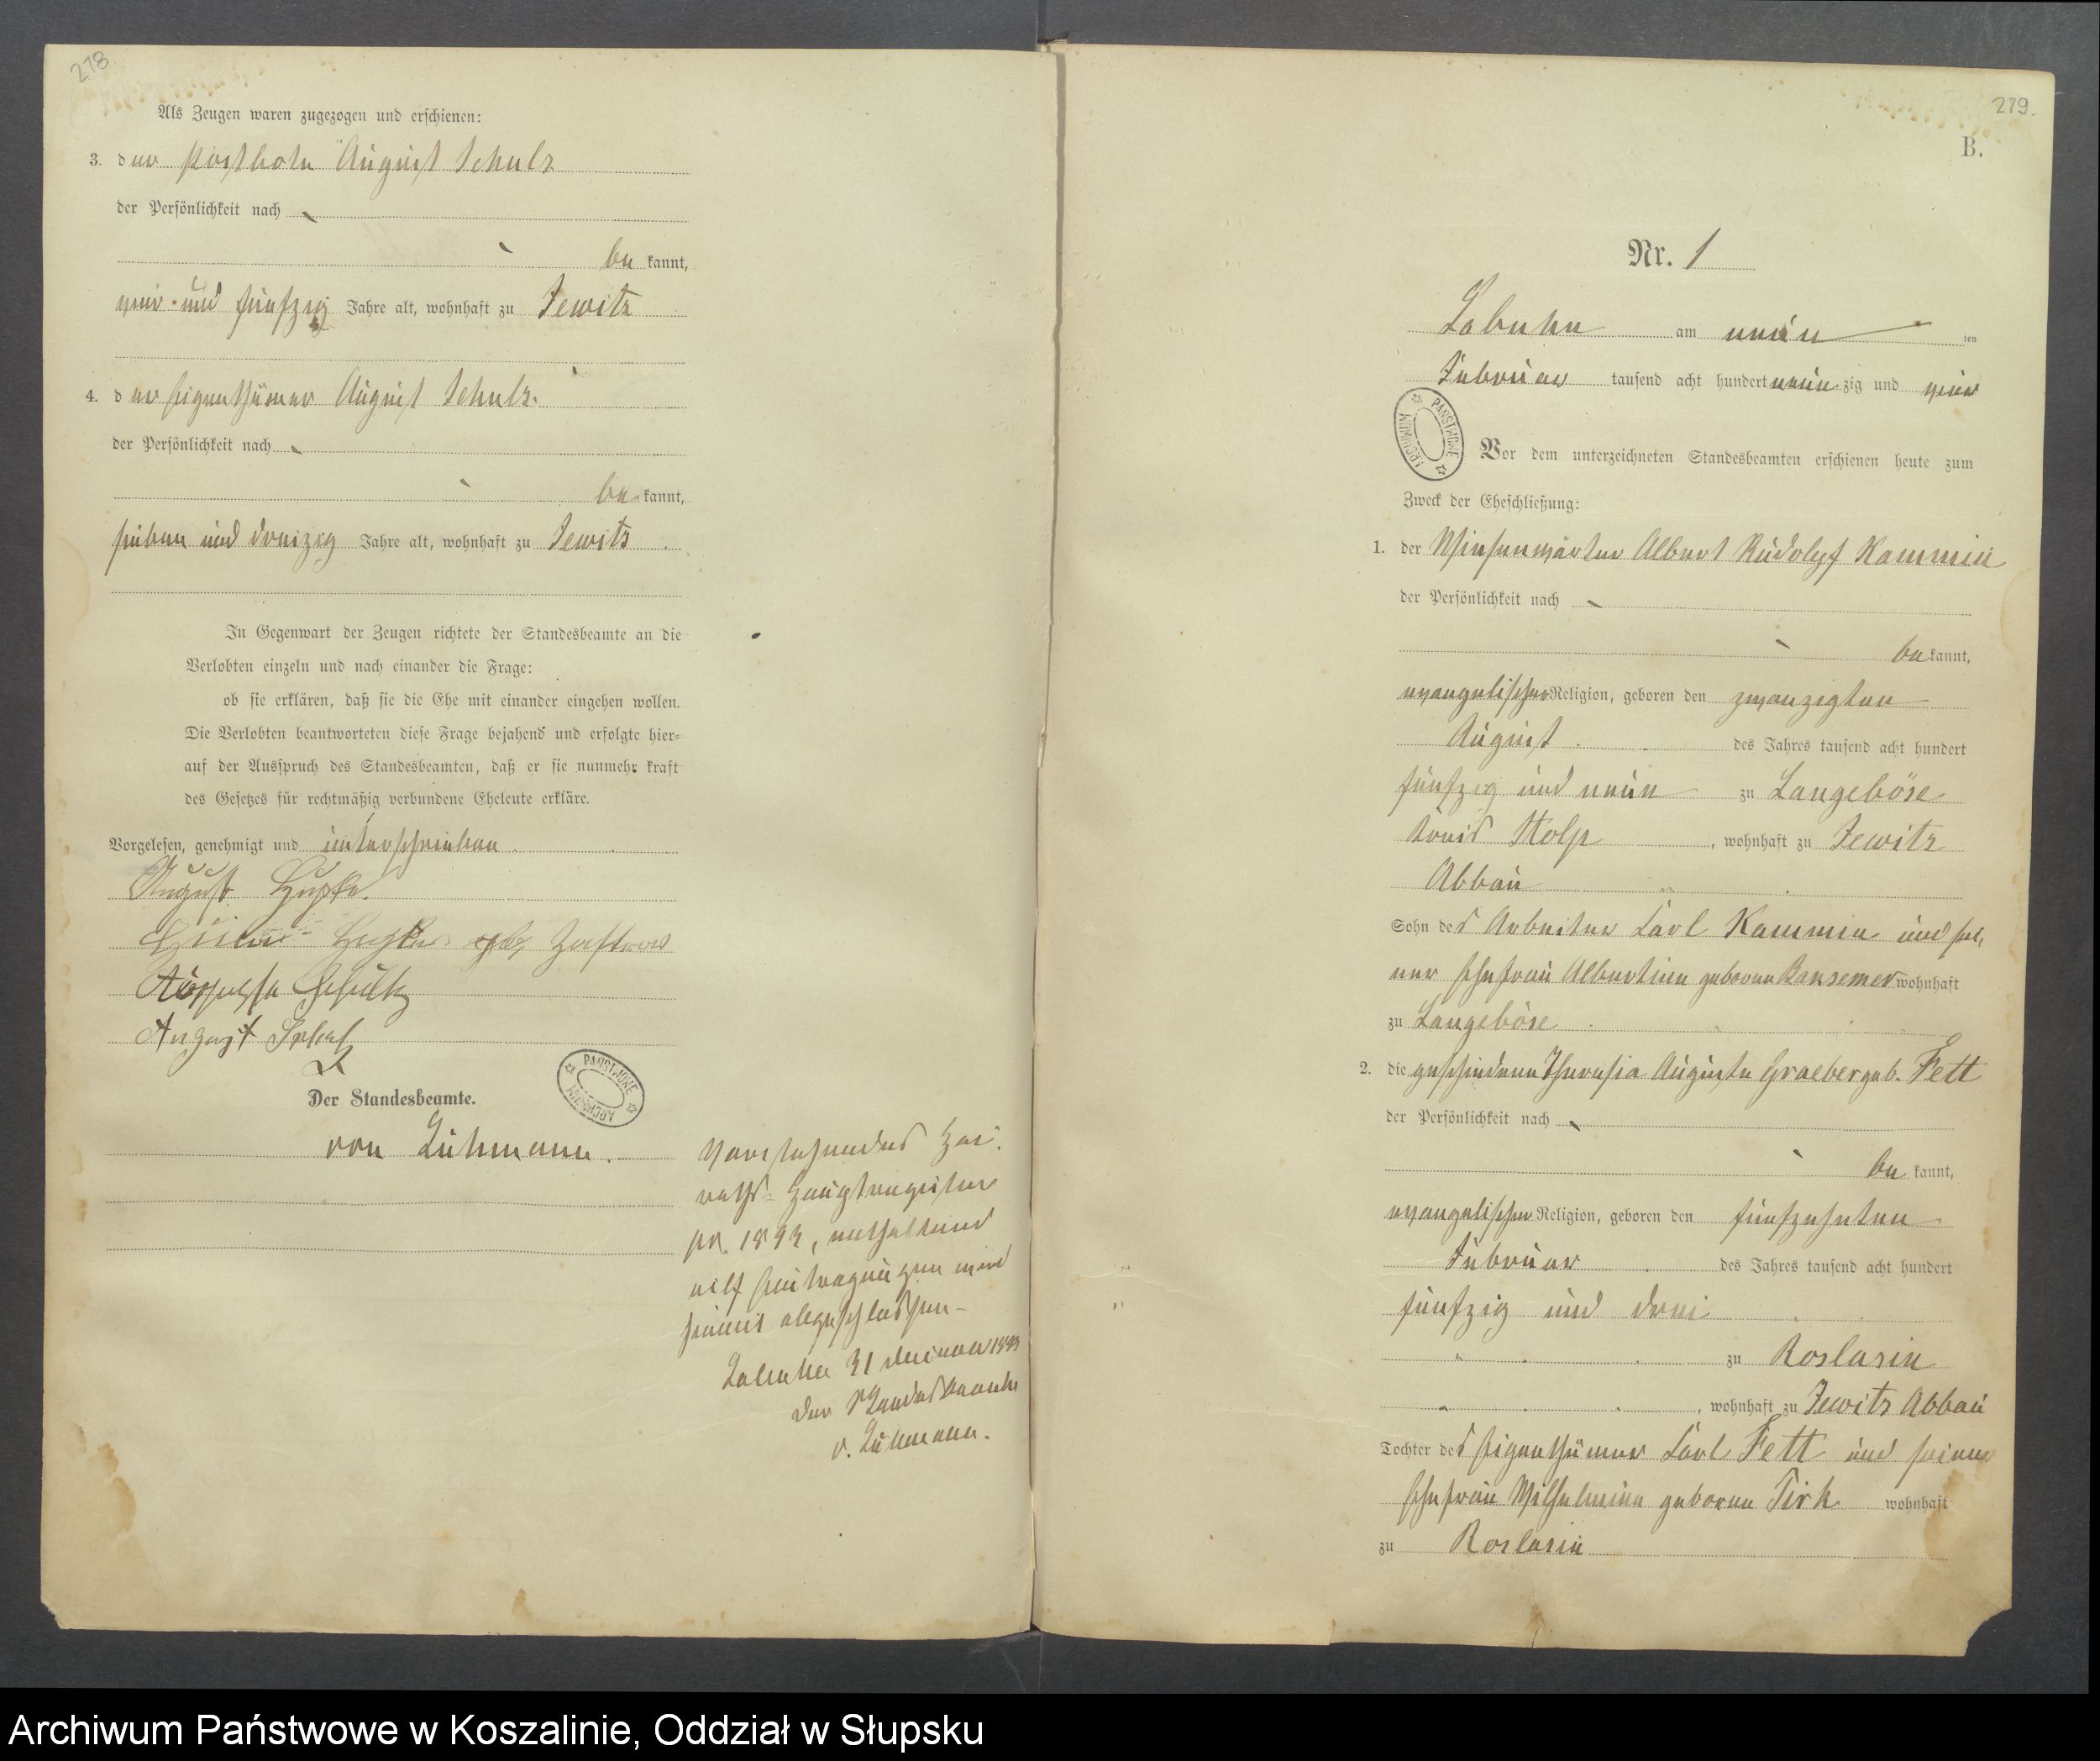 278
Als Zeugen waren zugezogen und erschienen:
3. der Postbote August Schulz
der Persönlichkeit nach
bekannt,
vier und fünfzig Jahre alt, wohnhaft zu Jewitz
4. der Eigenthümer August Schulz.
der Persönlichkeit nach
bekannt,
sieben und dreizig Jahre alt, wohnhaft zu Jewitz
In Gegenwart der Zeugen richtete der Standesbeamte an die
Verlobten einzeln und nach einander die Frage:
ob sie erklären, daß sie die Ehe mit einander eingehen wollen.
Die Verlobten beantworteten diese Frage bejahend und erfolgte hier-
auf der Ausspruch des Standesbeamten, daß er sie nunmehr kraft
des Gesetzes für rechtmäßig verbundene Eheleute erkläre.
Vorgelesen, genehmigt und unterschrieben
August
geb, Zastrow
Schultz
August
Der Standesbeamte.
von Lühmann.
PAŃSTWOWE ARCHIWUM
Vorstehendes Hei-
raths-Hauptregister
pr. 1893, enthaltend
elf Eintragungen wird
hiermit abgeschlossen-
Labuhn 31 December 1893
Der Standesbeamte
v. Lühmann.
279.
B.
Nr. 1
Labuhn am neun ten
Februar tausend acht hundert neunzig und vier
PAŃSTWOWE ARCHIWUM
Vor dem unterzeichneten Standesbeamten erschienen heute zum
Zweck der Eheschließung:
1. der Wiesenwärter Albert Rudolpf Kammin
der Persönlichkeit nach
bekannt,
evangelischer Religion, geboren den zwanzigten
August des Jahres tausend acht hundert
fünfzig und neun zu Langeböse
Kreis Stolp, wohnhaft zu Jewitz
Abbau
Sohn des Arbeiter Carl Kammin und sei,
ner Ehefrau Albertine geborne Bansemer wohnhaft
zu Langeböse
2. die geschiedene Theresia Auguste Graeber geb. Fett
der Persönlichkeit nach
bekannt,
evangelischer Religion, geboren den fünfzehnten
Februar des Jahres tausend acht hundert
fünfzig und drei
zu Roslasin
, wohnhaft zu Jewitz Abbau
Tochter des Eigenthümer Carl Fett und seiner
Ehefrau Wilhelmine geborne Tirk wohnhaft
zu Roslasin
Archiwum Państwowe w Koszalinie, Oddział w Słupsku